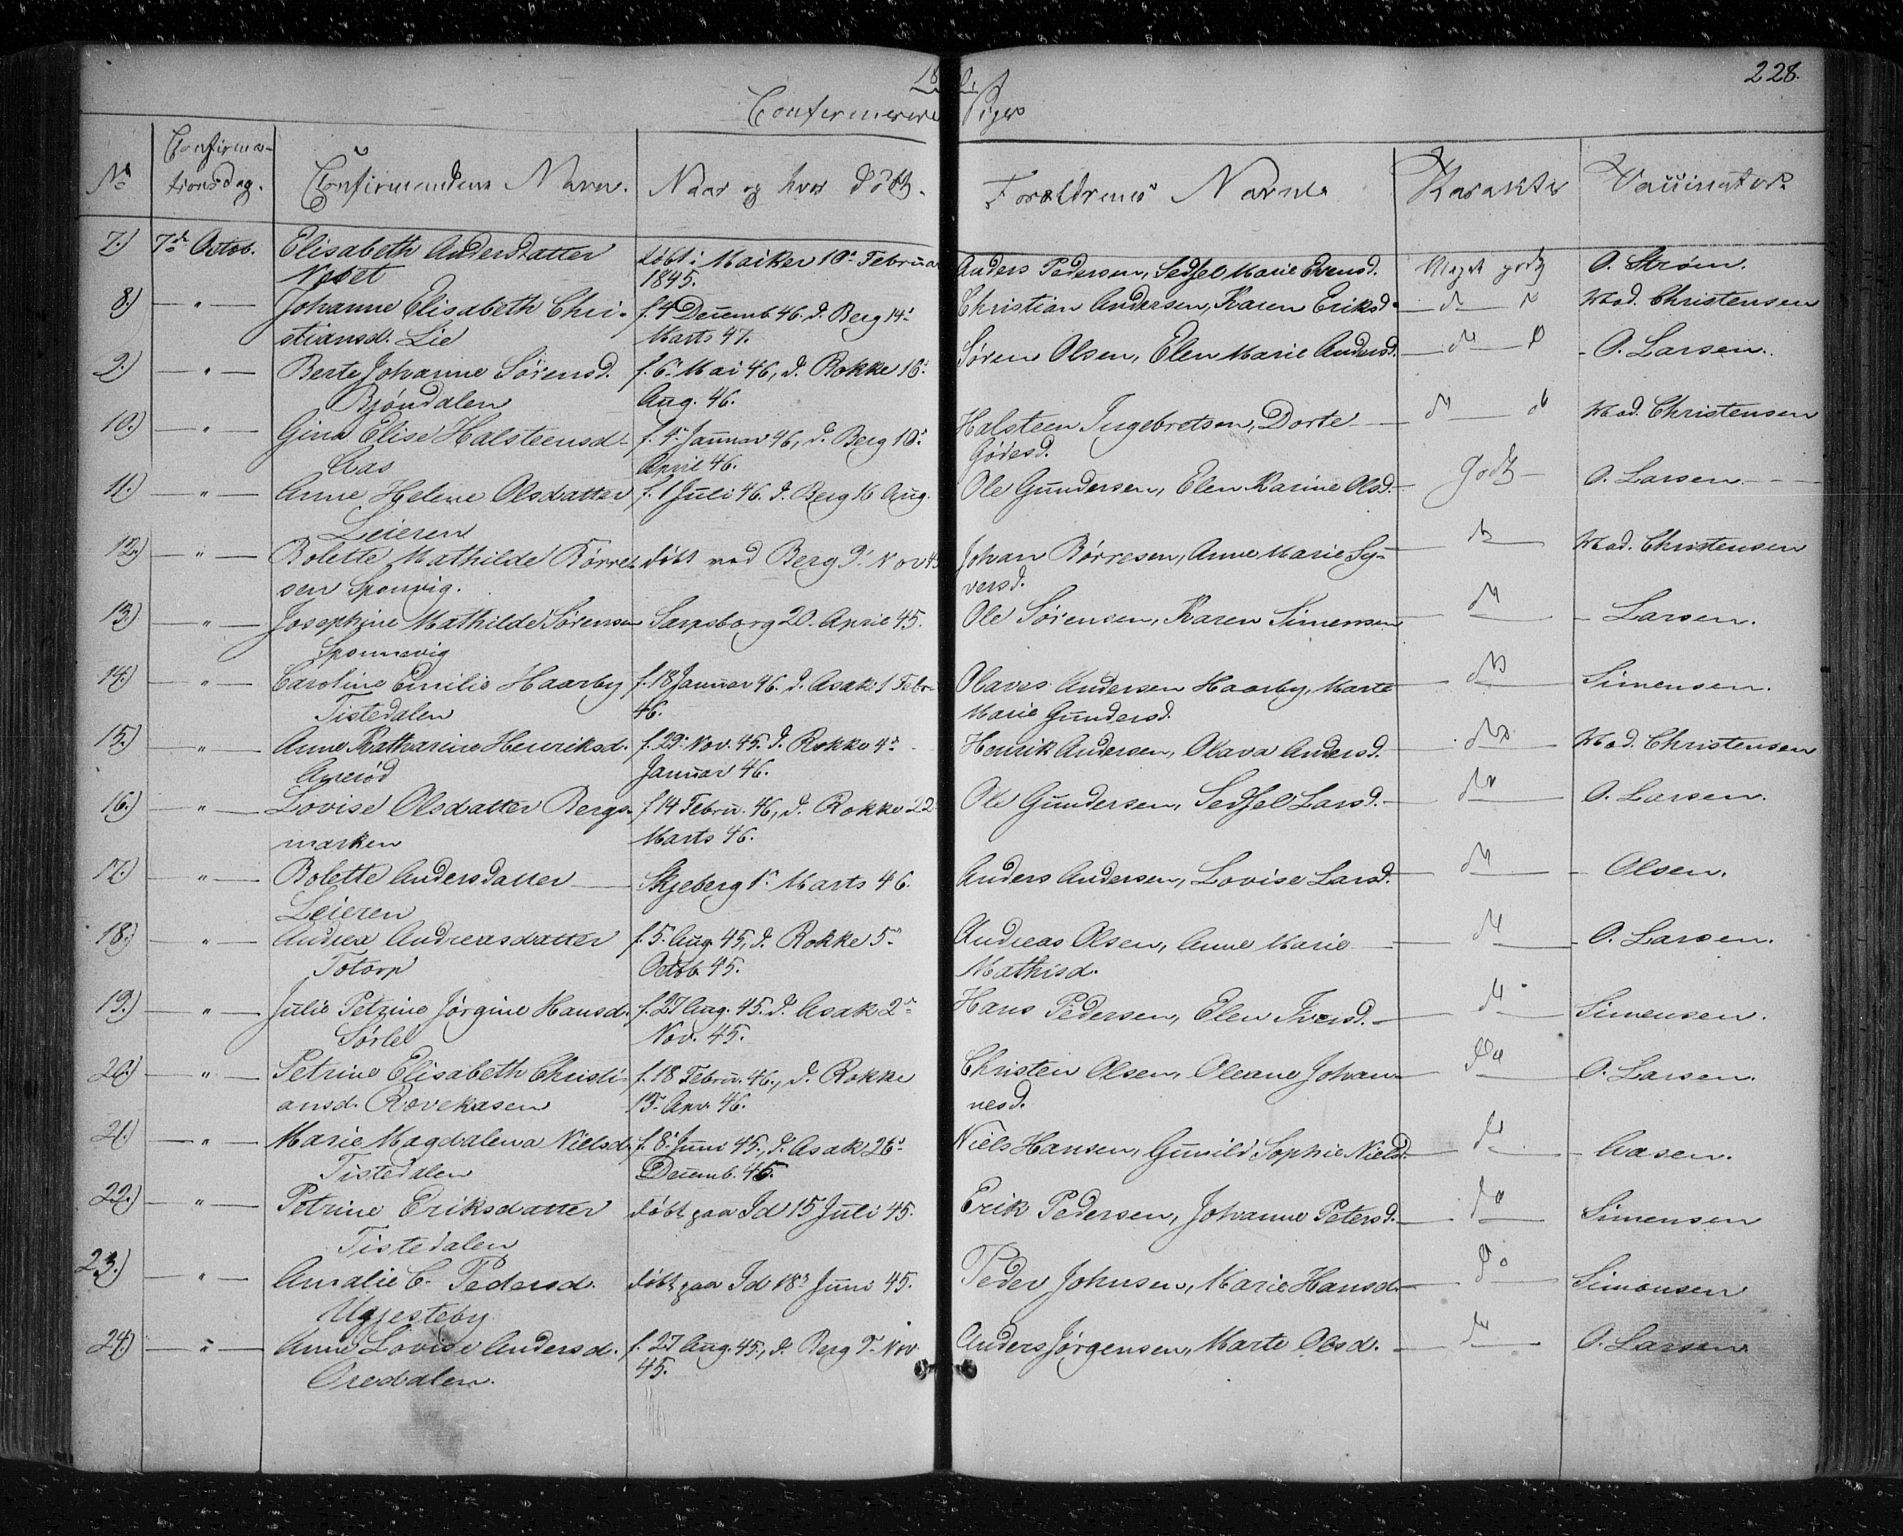 228.
Confirmerede Piger
No Confirmationsdag. Confirmandens Navn. Naar og hvor døbt. Forældrenes Navne Karakter Vaccinator
7.) 7de Octob. Elisabeth Andersdatter døbt i Anders Pedersen, Marie Meget godt O. Strøm.
1845.
8.) — " — Johanne Elisabeth Chri- f. 4 Decemb. 46. d. Berg 14de Christian Andersen, Karen Eriksd. Christensen
stiansd. Lie Marts 47.
9.) — " — Berte Johanne Sörensd. f. 6te Mai 46, d. Rokke 16de Søren Olsen, Elen Marie Andersd. O. Larsen.
Björndalen Aug. 46.
10.) — " — Gina Elise Halsteensd. Januar 46, d. Berg 10de Halsteen Ingebretsen, Dorte Christensen
Aas April 46.
11.) — " — Anne Helene Olsdatter f. 1 Juli 46. d. Berg 16 Aug. Ole Gundersen, Elen Karine Olsd. Godt O. Larsen
Leieren
12.) — " — Bolette Mathilde Børre- døbt ved Berg 9de Nov 45 Johan Børresen, Anne Marie Sy- Christensen
sen Sponvig. versd.
13.) — " — Josephine Mathilde Sørensen Sarpsborg 20. April 45. Ole Sørensen, Karen Simensen Larsen.
Sponvig
14.) — " — Caroline Emilie Haarby f. 18 Januar 46. d. Asak 1 Febr. Olaves Andersen Haarby, Marte Simensen.
Tistedalen 46. Marie Gundersd.
15.) — " — Anne Katharine Henriksd. f. 29de Nov. 45. d. Rokke 4de Henrik Andersen, Olava Andersd. Christensen
Januar 46.
16.) — " — Lovise Olsdatter Bergs- f. 14 Febru. 46, d. Rokke 22 Ole Gundersen, Larsd. O. Larsen.
marken Marts 46.
17.) — " — Bolette Andersdatter Skjeberg 1ste Marts 46. Anders Andersen, Lovise Larsd. Olsen.
Leieren
18.) — " — Andrea Andreasdatter f. 5. Aug. 45, d. Rokke 5te Andreas Olsen, Anne Marie O. Larsen.
Totorp Octob. 45. Mathisd.
19.) — " — Julie Petrine Jørgine Hansd. f. 27 Aug. 45. d. Asak 2den Hans Pedersen, Elen Iversd. Simensen.
Sørlie Nov. 45.
20.) — " — Petrine Elisabeth Christi- f. 18 Febru. 46., d. Rokke Christen Olsen, Oleane Johan- O. Larsen.
ansd. Rovekasen 13. Apr. 46. nesd.
21.) — " — Marie Magdalena Nielsd. f. 8de Juni 45., d. Asak 26de Niels Hansen, Gunild Sophie Nielsd. Aasen.
Tistedalen Decemb. 45.
22.) — " — Petrine Eriksdatter døbt paa Id 15 Juli 45. Erik Pedersen, Johanne Petersd. Simensen
Tistedalen
23.) — " — Amalie C. Pedersd. døbt paa Id 18de Juni 45. Peder Johnsen, Marie Hansd. Simonsen
24.) — " — Anne Lovise Andersd. f. 27 Aug. 45., d. Berg 9de Nov. Anders Jørgensen, Marte Olsd. O. Larsen
45.